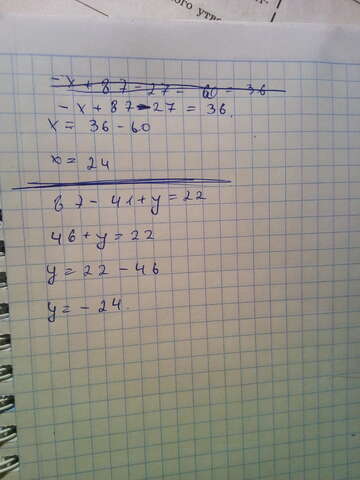 ного утре
-x + 87 - 27 - 60 = 36
-x + 87 - 27 = 36.
x = 36 - 60
x = 24
87 - 41 + y = 22
46 + y = 22
y = 22 - 46
y = - 24.